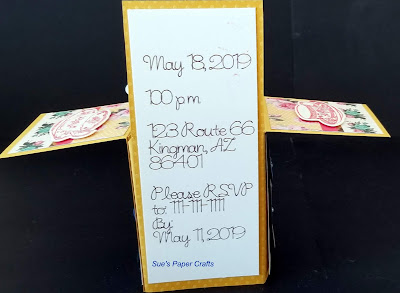 May 18, 2019
1:00 pm
123 Route 66
Kingman, AZ
86401
Please RSVP
to: 111-111-1111
By:
May 11, 2019
Sue's Paper Crafts